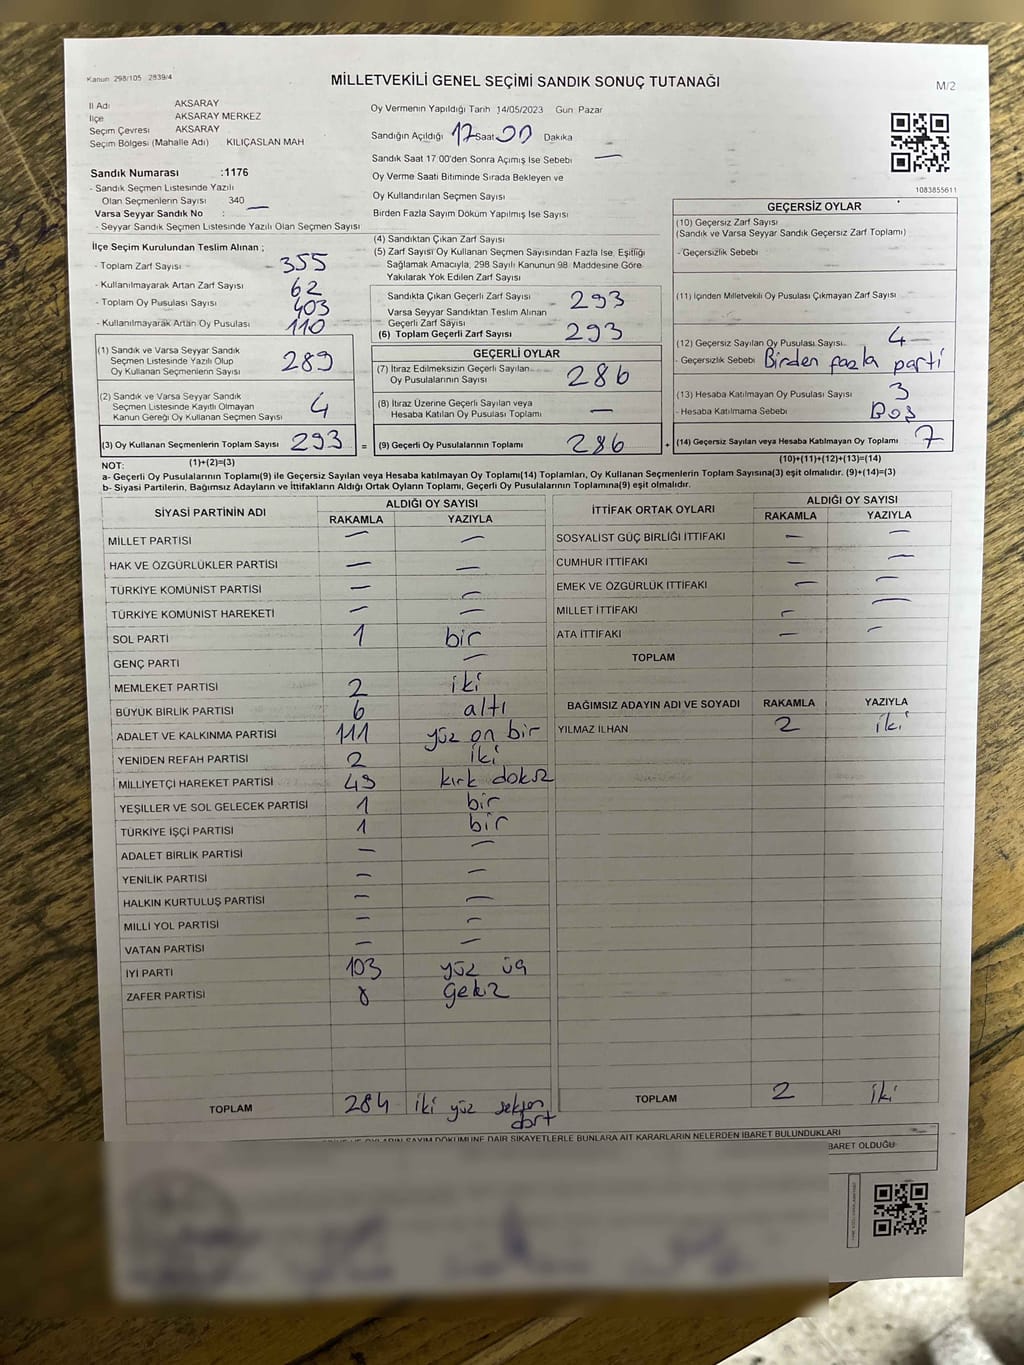 Kanun 298/105 2839/4
MİLLETVEKİLİ GENEL SEÇİMİ SANDIK SONUÇ TUTANAĞI
M/2
İl Adı AKSARAY
İlçe AKSARAY MERKEZ
Seçim Çevresi AKSARAY
Seçim Bölgesi (Mahalle Adı) KILIÇASLAN MAH
Sandık Numarası :1176
- Sandık Seçmen Listesinde Yazılı
Olan Seçmenlerin Sayısı 340
Varsa Seyyar Sandık No :
- Seyyar Sandık Seçmen Listesinde Yazılı Olan Seçmen Sayısı
Oy Vermenin Yapıldığı Tarih 14/05/2023 Gün Pazar
Sandığın Açıldığı 17 Saat 00 Dakika
Sandık Saat 17:00'den Sonra Açımış İse Sebebi —
Oy Verme Saati Bitiminde Sırada Bekleyen ve
Oy Kullandırılan Seçmen Sayısı
Birden Fazla Sayım Döküm Yapılmış İse Sayısı
1083855611
İlçe Seçim Kurulundan Teslim Alınan ;
- Toplam Zarf Sayısı 355
- Kullanılmayarak Artan Zarf Sayısı 62
- Toplam Oy Pusulası Sayısı 403
- Kullanılmayarak Artan Oy Pusulası 110
(1) Sandık ve Varsa Seyyar Sandık
Seçmen Listesinde Yazılı Olup
Oy Kullanan Seçmenlerin Sayısı 289
(2) Sandık ve Varsa Seyyar Sandık
Seçmen Listesinde Kayıtlı Olmayan
Kanun Gereği Oy Kullanan Seçmen Sayısı 4
(3) Oy Kullanan Seçmenlerin Toplam Sayısı 293
(1)+(2)=(3)
(4) Sandıktan Çıkan Zarf Sayısı
(5) Zarf Sayısı Oy Kullanan Seçmen Sayısından Fazla İse, Eşitliği
Sağlamak Amacıyla; 298 Sayılı Kanunun 98. Maddesine Göre
Yakılarak Yok Edilen Zarf Sayısı
Sandıkta Çıkan Geçerli Zarf Sayısı 293
Varsa Seyyar Sandıktan Teslim Alınan
Geçerli Zarf Sayısı
(6) Toplam Geçerli Zarf Sayısı 293
GEÇERLİ OYLAR
(7) İtiraz Edilmeksizin Geçerli Sayılan
Oy Pusulalarının Sayısı 286
(8) İtiraz Üzerine Geçerli Sayılan veya
Hesaba Katılan Oy Pusulası Toplamı —
= (9) Geçerli Oy Pusulalarının Toplamı 286
GEÇERSİZ OYLAR
(10) Geçersiz Zarf Sayısı
(Sandık ve Varsa Seyyar Sandık Geçersiz Zarf Toplamı)
- Geçersizlik Sebebi
(11) İçinden Milletvekili Oy Pusulası Çıkmayan Zarf Sayısı
(12) Geçersiz Sayılan Oy Pusulası Sayısı 4 —
- Geçersizlik Sebebi Birden fazla parti
(13) Hesaba Katılmayan Oy Pusulası Sayısı 3
- Hesaba Katılmama Sebebi Boş
+ (14) Geçersiz Sayılan veya Hesaba Katılmayan Oy Toplamı 7
(10)+(11)+(12)+(13)=(14)
NOT:
a- Geçerli Oy Pusulalarının Toplamı(9) ile Geçersiz Sayılan veya Hesaba katılmayan Oy Toplamı(14) Toplamları, Oy Kullanan Seçmenlerin Toplam Sayısına(3) eşit olmalıdır. (9)+(14)=(3)
b- Siyasi Partilerin, Bağımsız Adayların ve İttifakların Aldığı Ortak Oyların Toplamı, Geçerli Oy Pusulalarının Toplamına(9) eşit olmalıdır.
SİYASİ PARTİNİN ADI ALDIĞI OY SAYISI
RAKAMLA YAZIYLA
MİLLET PARTİSİ — —
HAK VE ÖZGÜRLÜKLER PARTİSİ — —
TÜRKİYE KOMÜNİST PARTİSİ — —
TÜRKİYE KOMÜNİST HAREKETİ — —
SOL PARTİ 1 bir
GENÇ PARTİ —
MEMLEKET PARTİSİ 2 iki
BÜYÜK BİRLİK PARTİSİ 6 altı
ADALET VE KALKINMA PARTİSİ 111 yüz on bir
YENİDEN REFAH PARTİSİ 2 iki
MİLLİYETÇİ HAREKET PARTİSİ 49 kırk dokuz
YEŞİLLER VE SOL GELECEK PARTİSİ 1 bir
TÜRKİYE İŞÇİ PARTİSİ 1 bir
ADALET BİRLİK PARTİSİ — —
YENİLİK PARTİSİ — —
HALKIN KURTULUŞ PARTİSİ — —
MİLLİ YOL PARTİSİ — —
VATAN PARTİSİ — —
İYİ PARTİ 103 yüz üç
ZAFER PARTİSİ 8 Sekiz
TOPLAM 284 iki yüz seksen
dört
İTTİFAK ORTAK OYLARI ALDIĞI OY SAYISI
RAKAMLA YAZIYLA
SOSYALİST GÜÇ BİRLİĞİ İTTİFAKI — —
CUMHUR İTTİFAKI — —
EMEK VE ÖZGÜRLÜK İTTİFAKI — —
MİLLET İTTİFAKI — —
ATA İTTİFAKI — —
TOPLAM
BAĞIMSIZ ADAYIN ADI VE SOYADI RAKAMLA YAZIYLA
YILMAZ İLHAN 2 iki
TOPLAM 2 iki
OYLARIN SAYIM DÖKÜMÜNE DAİR ŞİKAYETLERLE BUNLARA AİT KARARLARIN NELERDEN İBARET BULUNDUKLARI
BARET OLDUĞU